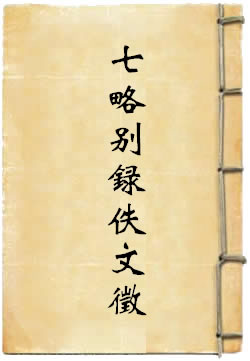 七略别録佚文徵